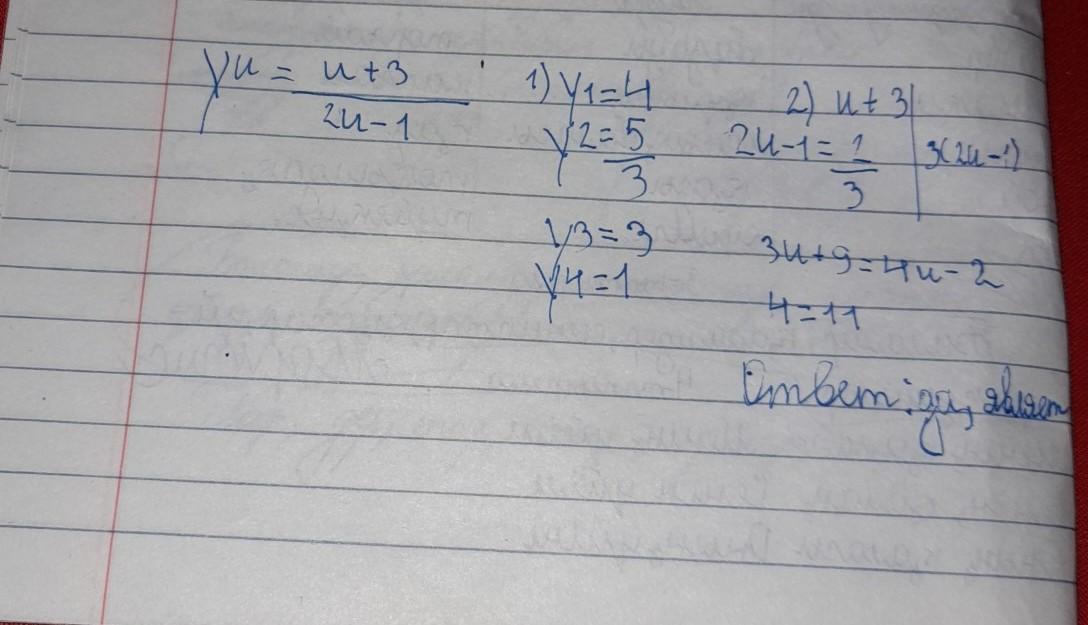 yn = n+3
2n-1
1) y1=4
y2=5
3
y3=3
y4=1
2) n+3
2n-1=2
3
3(2n-1)
3n+9=4n-2
4=11
Ответ: да, являет